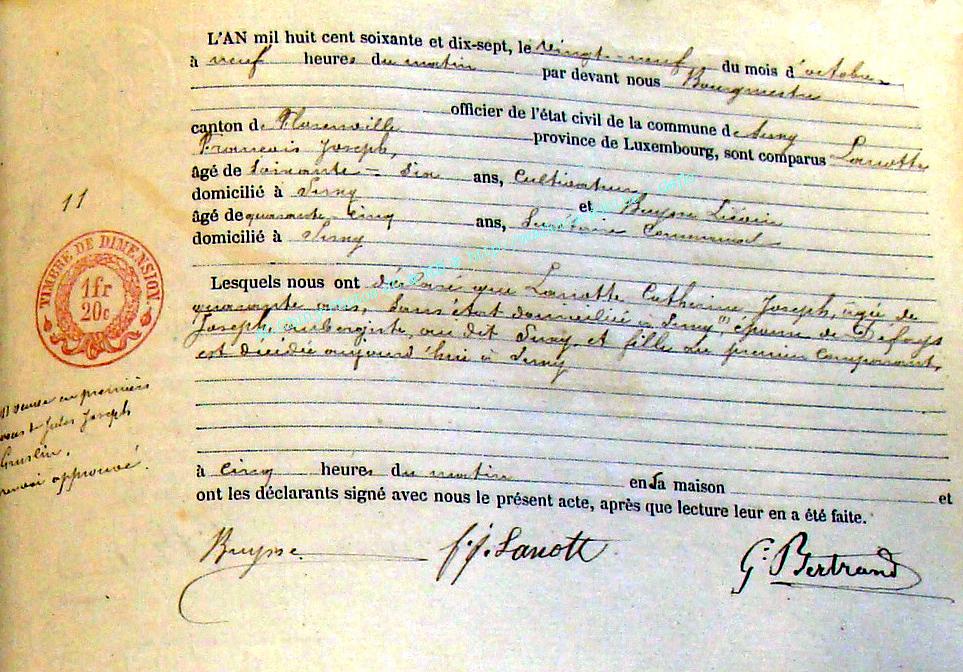 L'AN mil huit cent soixante et dix-sept, le vingt-neuf du mois d'octobre
à neuf heures du matin par devant nous Bourgmestre
officier de l'état civil de la commune de Suny
canton de Florenville province de Luxembourg, sont comparus Lanotte
François Joseph,
âgé de soixante-dix ans, Cultivateur,
domicilié à Suny et Buysse Liévin
âgé de quarante-cinq ans, Secrétaire Communal
domicilié à Suny
Lesquels nous ont déclaré que Lanotte Catherine Joseph, âgée de
quarante ans, Sans état domiciliée à Suny (1) épouse de Défays
Joseph, aubergiste, au dit Suny, et fille du premier comparant,
est décédée aujourd'hui à Suny
à cinq heures du matin en sa maison et
ont les déclarants signé avec nous le présent acte, après que lecture leur en a été faite.
Buysse f.j. Lanotte G. Bertrand
11
TIMBRE DE DIMENSION
1fr
20c
(1) veuve en premières
noces de Jules Joseph
renvoi approuvé.